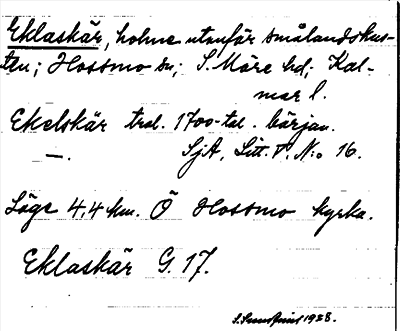 Eklaskär, holme utanför smålandskus-
ten; Hossmo sn; S. Möre hd; Kal-
mar l.
Ekelskär trol. 1700-tal. början.
—. SjA, Litt. P. N:o 16.
Läge 4,4 km. Ö Hossmo kyrka.
Eklaskär G. 17.
1928.